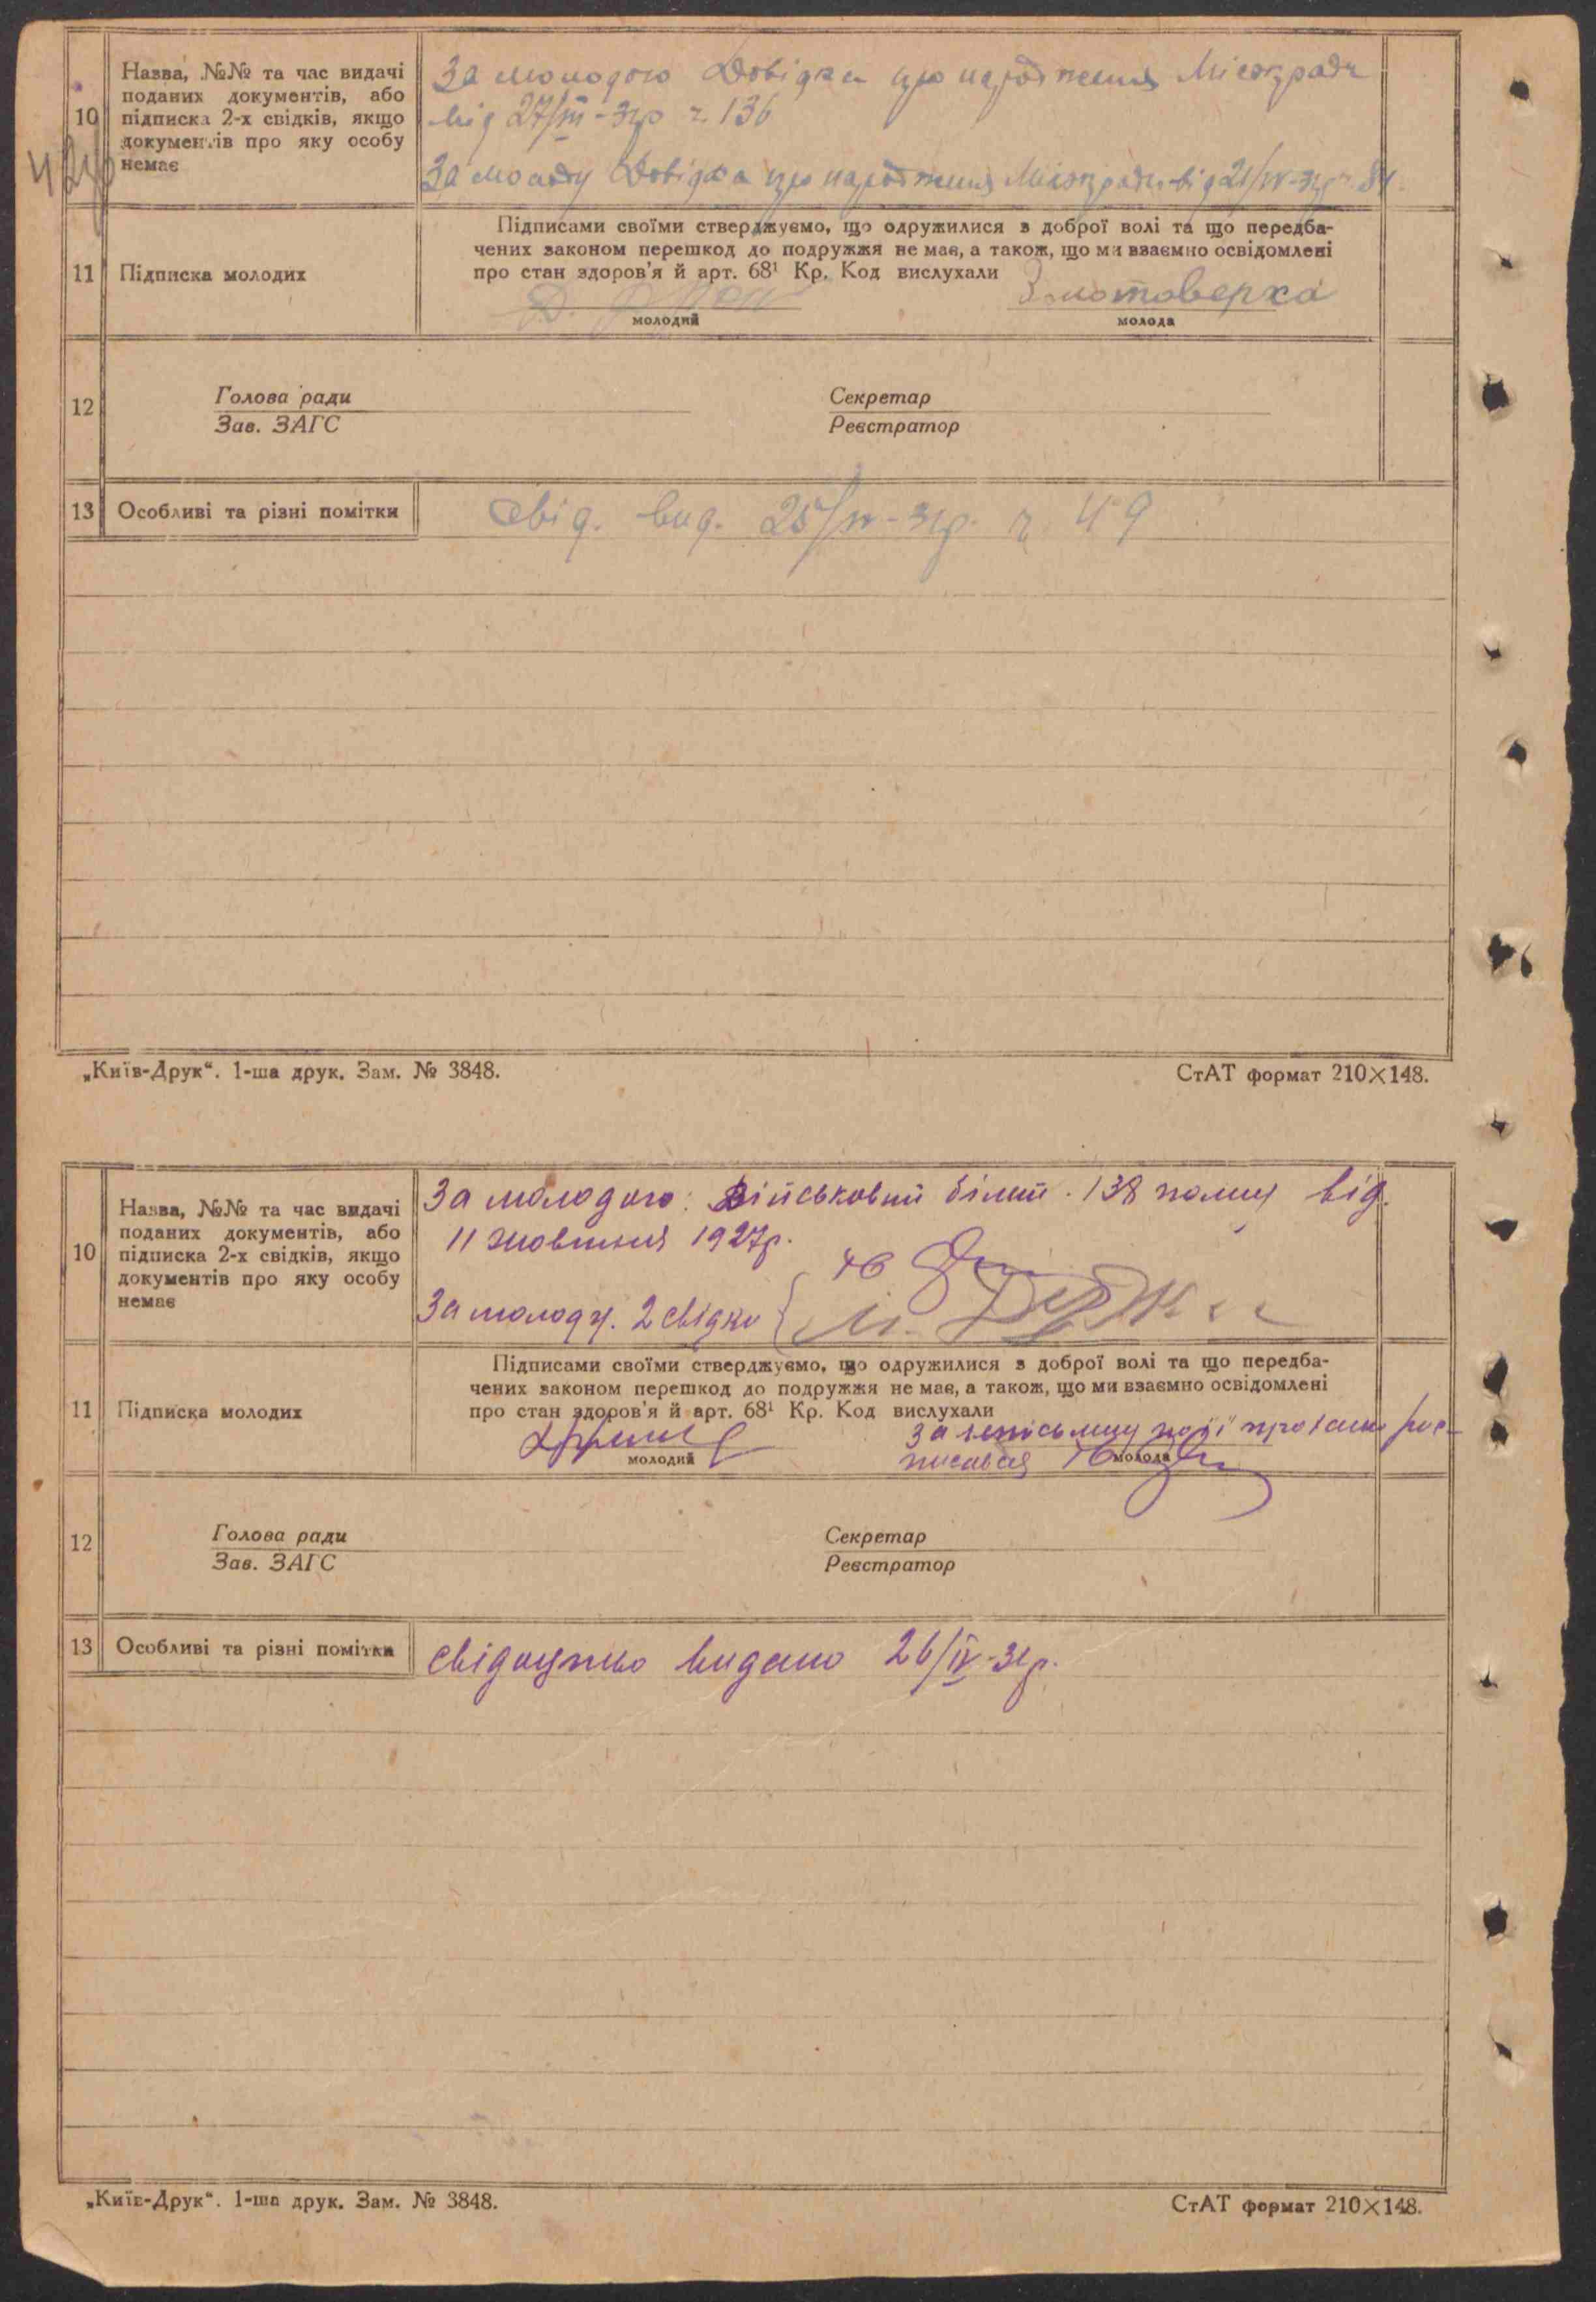 Назва, №№ та час видачі
поданих документів, або
10 підписка 2-х свідків, якщо
документів про яку особу
немає
За молодого Довідка про народження Міськради
від 27/III-31р ч. 136
За молоду Довідка про народження Міськради від 21/IV-31р ч. 81
11 Підписка молодих
Підписами своїми стверджуємо, що одружилися з доброї волі та що передба-
чених законом перешкод до подружжя не має, а також, що ми взаємно освідомлені
про стан здоров'я й арт. 68¹ Кр. Код вислухали
Золотоверха
молодий молода
12 Голова ради Секретар
Зав. ЗАГС Реєстратор
13 Особливі та різні помітки Свід. вид. 25/IV-31р. ч 49
„Київ-Друк“. 1-ша друк. Зам. № 3848. СтАТ формат 210×148.
Назва, №№ та час видачі
поданих документів, або
10 підписка 2-х свідків, якщо
документів про яку особу
немає
За молодого: Військовий білет. 138 полку від.
11 жовтня 1927р.
За молоду. 2 свідки
11 Підписка молодих
Підписами своїми стверджуємо, що одружилися з доброї волі та що передба-
чених законом перешкод до подружжя не має, а також, що ми взаємно освідомлені
про стан здоров'я й арт. 68¹ Кр. Код вислухали
за неписьмену рос-
писався
молодий молода
12 Голова ради Секретар
Зав. ЗАГС Реєстратор
13 Особливі та різні помітки свідоцтво видано 26/IV-31р.
„Київ-Друк“. 1-ша друк. Зам. № 3848. СтАТ формат 210×148.